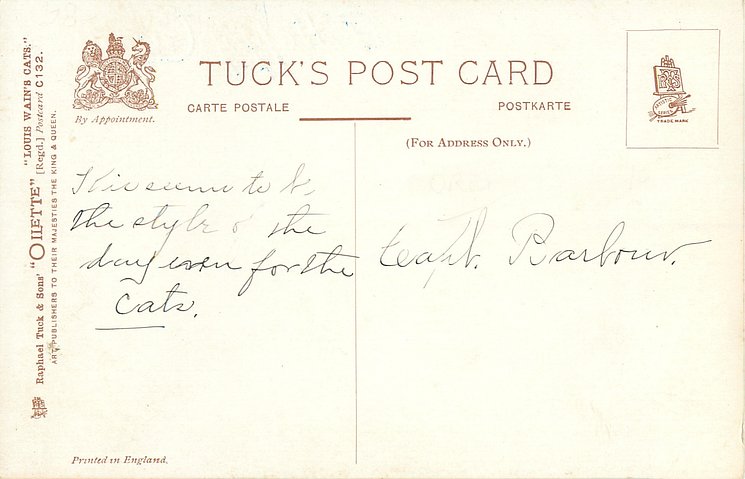 TUCK'S POST CARD
CARTE POSTALE
POSTKARTE
(FOR ADDRESS ONLY.)
By Appointment.
Raphael Tuck & Sons' "OILETTE" [Regd.] Postcard C132.
"LOUIS WAIN'S CATS."
ART PUBLISHERS TO THEIR MAJESTIES THE KING & QUEEN.
ARTISTIC
SERIES
TRADE MARK
seems to be
the style of the
day even for the
cats.
Capt. Barbour.
Printed in England.